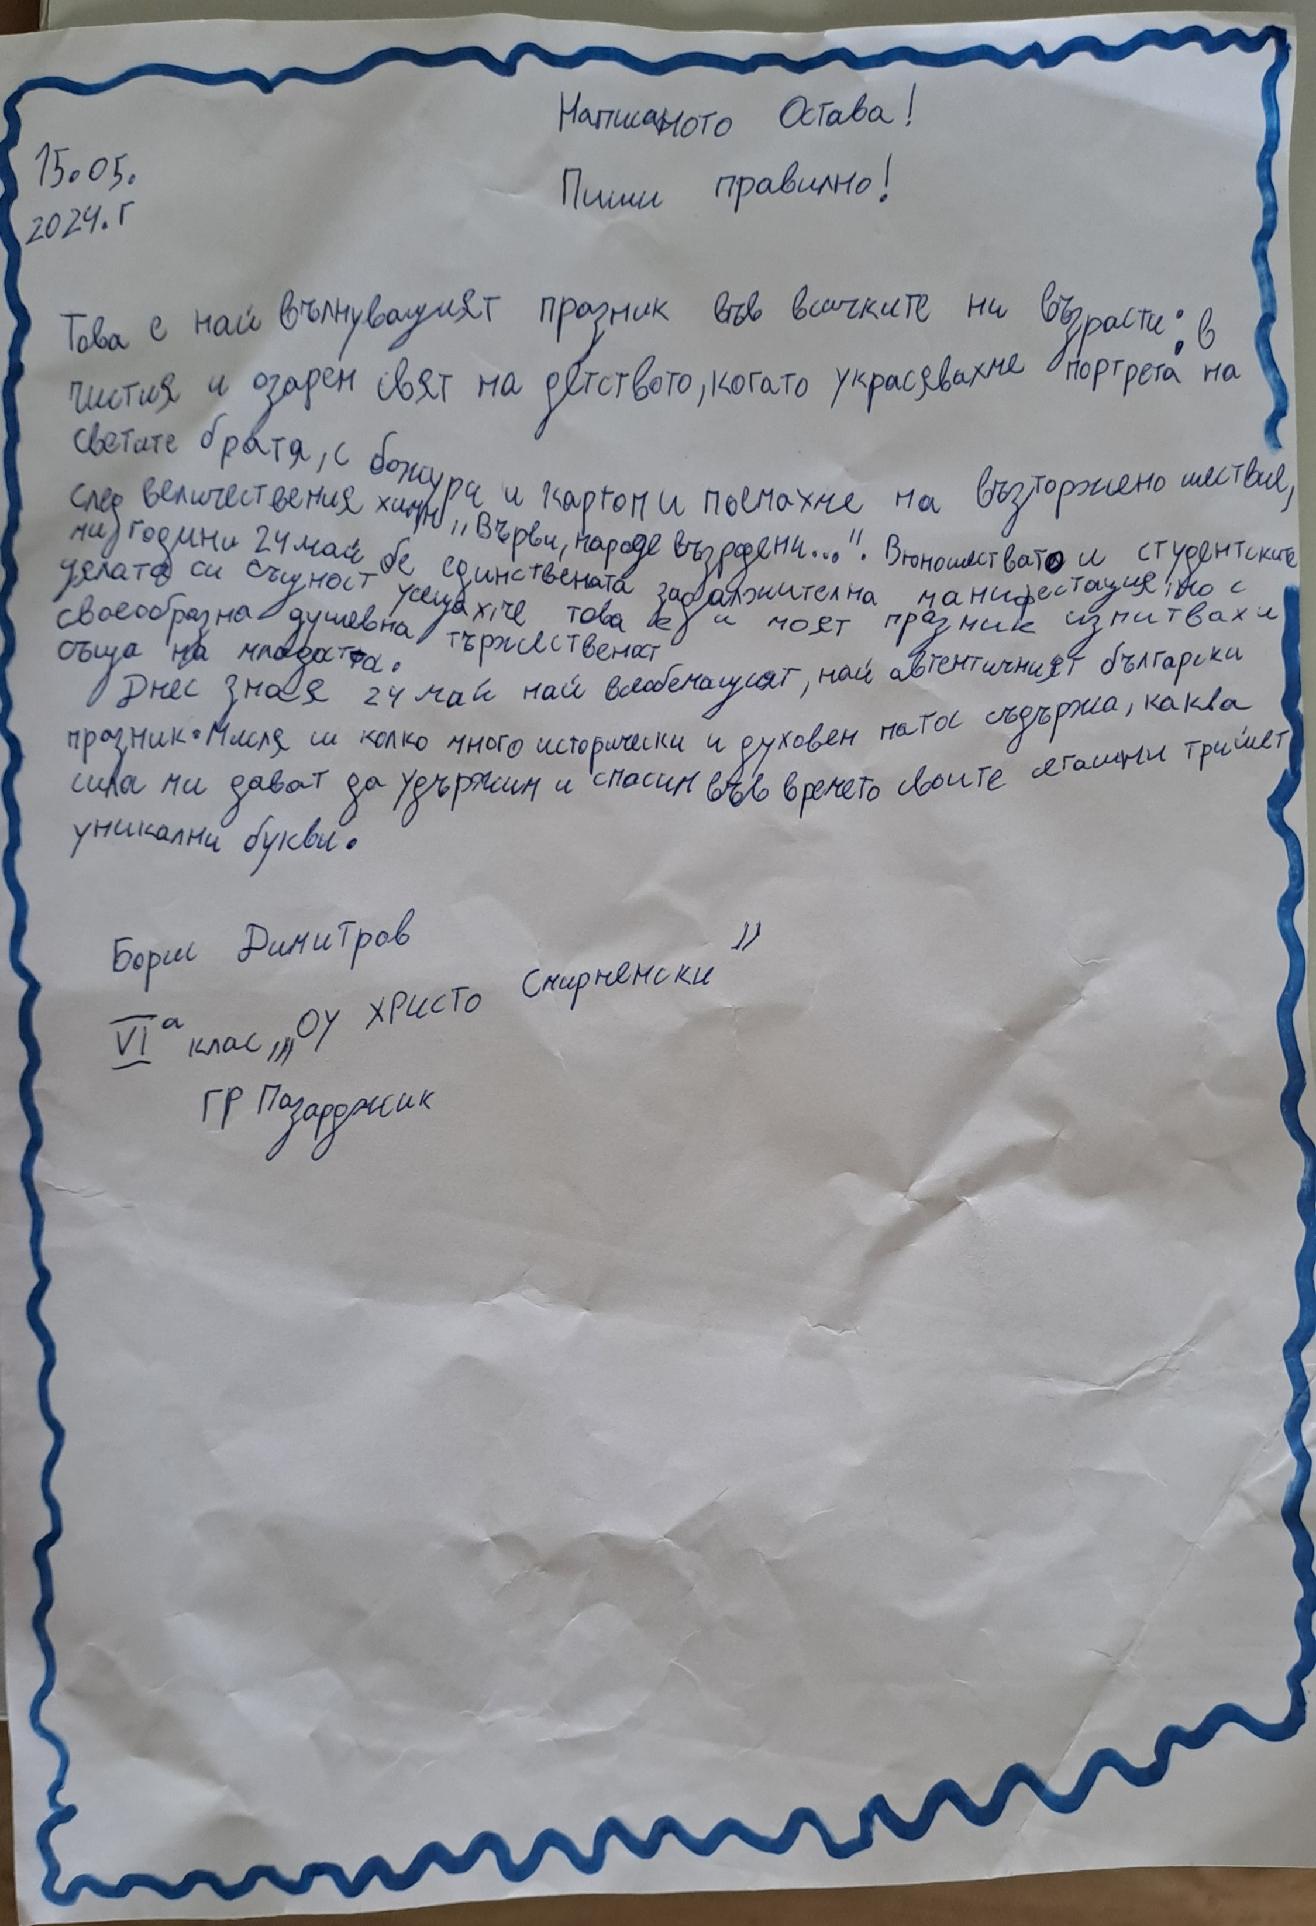 Написаното Остава!
Пиши правилно!
15.05.
2024.г
Това е най вълнуващият празник във всичките ни възрасти: в
чистия и озарен свят на детството, когато украсявахме портрета на
светите братя, с божури и картон и поемахме на възторжено шествия,
след величествения химн „Върви, народе възродени...". Вюношествато и студентските
ни години 24 май бе единствената задължителна манифестация, но с
цялата си същност усещахме това е и моят празник изпитвахи
своеобразна душевна тържественост
съща на младостта.
Днес зная 24 май най всеобемащият, най автентичният български
празник. Мисля си колко много исторически и духовен патос съдържа, каква
сила ни дават да удържим и спасим във времето своите сегашни трийсет
уникални букви.
Борис Димитров
VI а клас, „ОУ Христо Смирненски"
ГР Пазарджик